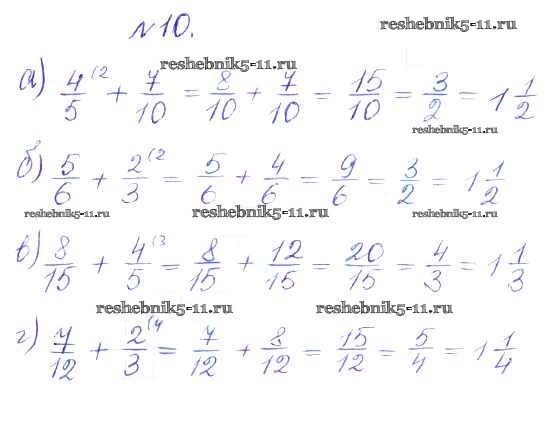 №10.
reshebnik5-11.ru
reshebnik5-11.ru
а) 4/5 (2 + 7/10 = 8/10 + 7/10 = 15/10 = 3/2 = 1 1/2
reshebnik5-11.ru
б) 5/6 + 2/3 (2 = 5/6 + 4/6 = 9/6 = 3/2 = 1 1/2
reshebnik5-11.ru reshebnik5-11.ru reshebnik5-11.ru
в) 8/15 + 4/5 (3 = 8/15 + 12/15 = 20/15 = 4/3 = 1 1/3
reshebnik5-11.ru reshebnik5-11.ru
г) 7/12 + 2/3 (4 = 7/12 + 8/12 = 15/12 = 5/4 = 1 1/4